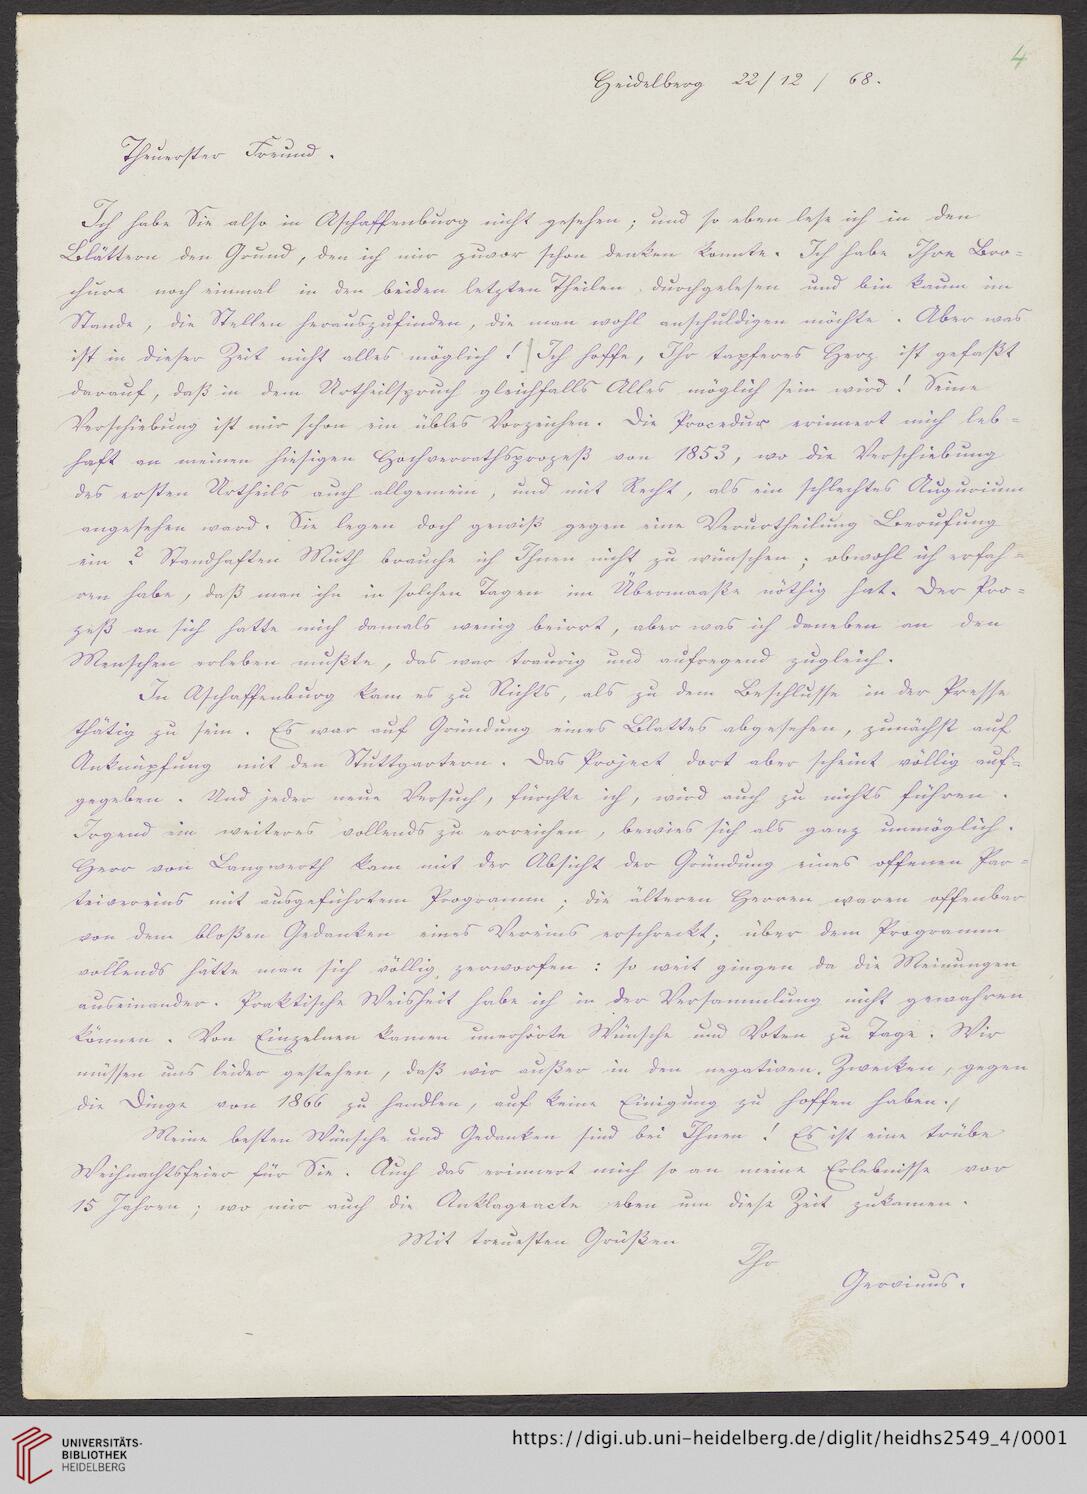 4
Heidelberg 22/12/68.
Theuerster Freund.
Ich habe Sie also in Aschaffenburg nicht gesehen; und so eben lese ich in den
Blättern den Grund, den ich mir zuvor schon denken konnte. Ich habe Ihre Bro=
chure noch einmal in den beiden letzten Theilen durchgelesen und bin kaum im
Stande, die Stellen herauszufinden, die man wohl anschuldigen möchte. Aber was
ist in dieser Zeit nicht alles möglich! Ich hoffe, Ihr tapferes Herz ist gefaßt
darauf, daß in dem Urtheilspruch gleichfalls Alles möglich sein wird! Seine
Verschiebung ist mir schon ein übles Vorzeichen. Die Procedur erinnert mich leb=
haft an meinen hiesigen Hochverrathsprozeß von 1853, wo die Verschiebung
des ersten Urtheils auch allgemein, und mit Recht, als ein schlechtes Augurium
angesehen ward. Sie legen doch gewiß gegen eine Verurtheilung Berufung
ein? Standhaften Muth brauche ich Ihnen nicht zu wünschen; obwohl ich erfah=
ren habe, daß man ihn in solchen Tagen im Übermaaße nöthig hat. Der Pro=
zeß an sich hatte mich damals wenig beirrt, aber was ich daneben an den
Menschen erleben mußte, das war traurig und aufregend zugleich.
In Aschaffenburg kam es zu Nichts, als zu dem Beschlusse in der Presse
thätig zu sein. Es war auf Gründung eines Blattes abgesehen, zunächst auf
Anknüpfung mit den Stuttgartern. Das Project dort aber scheint völlig auf=
gegeben. Und jeder neue Versuch, fürchte ich, wird auch zu nichts führen.
Irgend ein weiteres vollends zu erreichen, bewies sich als ganz unmöglich.
Herr von Langwerth kam mit der Absicht der Gründung eines offenen Par=
teivereins mit ausgeführtem Programm; die älteren Herren waren offenbar
von dem bloßen Gedanken eines Vereins erschreckt; über dem Programm
vollends hätte man sich völlig zerworfen: so weit gingen da die Meinungen
auseinander. Praktische Weisheit habe ich in der Versammlung nicht gewahren
können. Von Einzelnen kamen unerhörte Wünsche und Voten zu Tage. Wir
müssen uns leider gestehen, daß wir außer in den negativen Zwecken, gegen
die Dinge von 1866 zu handlen, auf keine Einigung zu hoffen haben./
Meine besten Wünsche und Gedanken sind bei Ihnen! Es ist eine trübe
Weihnachtsfeier für Sie. Auch das erinnert mich so an meine Erlebnisse vor
15 Jahren; wo mir auch die Anklageacte eben um diese Zeit zukamen.
Mit treuesten Grüßen
Ihr
Gervinus.
UNIVERSITÄTS-
BIBLIOTHEK
HEIDELBERG
https://digi.ub.uni-heidelberg.de/diglit/heidhs2549_4/0001